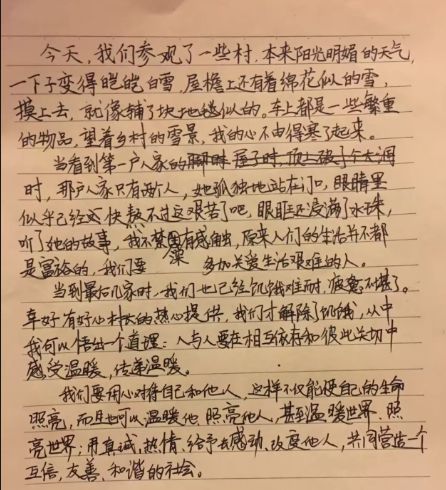 今天，我们参观了一些村，本来阳光明媚的天气，
一下子变得皑皑白雪，屋檐上还有着绵花似的雪，
摸上去，就像铺了块地毯似的。车上都是一些繁重
的物品，望着乡村的雪景，我的心不由得寒了起来。
当看到第一户人家的屋子时，顶上破了个大洞
时，那户人家只有两个人，她孤独地站在门口，眼睛里
似乎已经快熬不过这艰苦了吧，眼眶还浸满了水珠，
听了她的故事，我不禁有感触，原来人们的生活并不都
是富裕的，我们要多加关爱生活艰难的人。
当到最后几家时，我们也已经饥饿难耐，疲惫不堪了。
幸好有好心村民的热心提供，我们才解除了饥饿，从中
我可以悟出一个道理：人与人要在相互依存和彼此关切中
感受温暖，传递温暖。
我们要用心对待自己和他人，这样不仅能使自己的生命
照亮，而且也可以温暖他 照亮他人，甚至温暖世界 照
亮世界；用真诚，热情，给予去感动，改变他人，共同营造一个
互信，友善，和谐的社会。